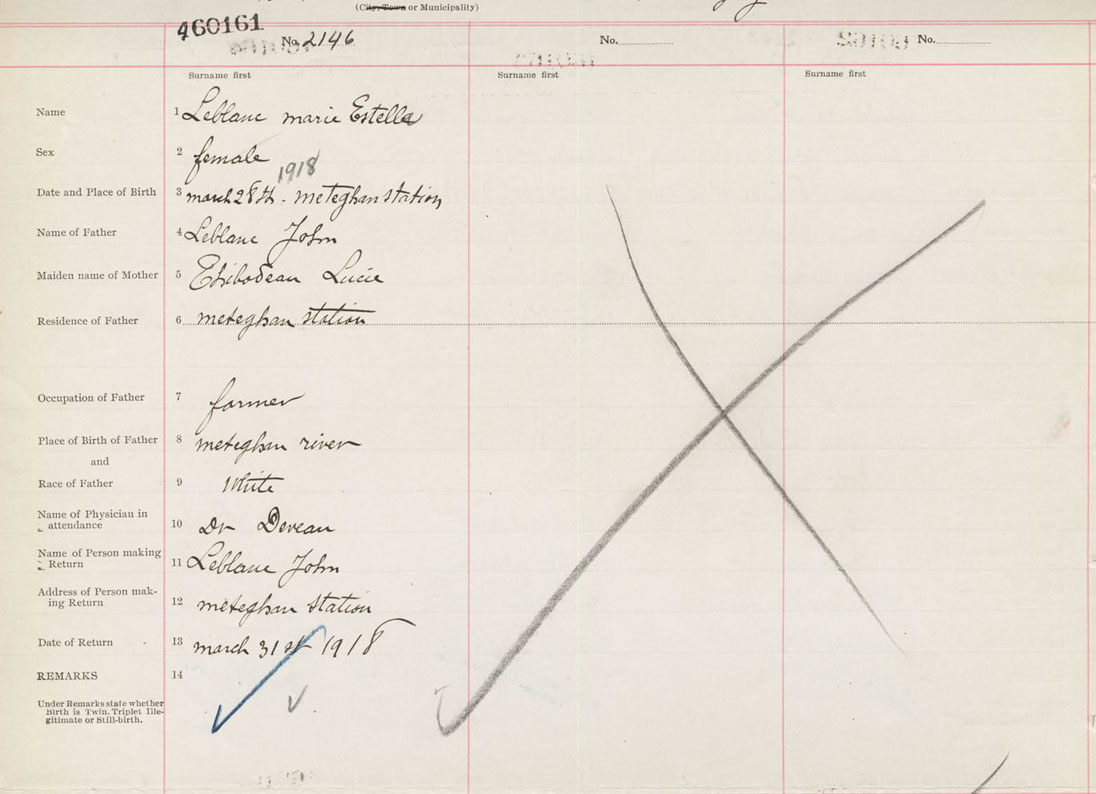 (City, Town or Municipality)
460161
No. 2146 No. No.
Surname first Surname first Surname first
Name 1 Leblanc marie Estella
Sex 2 female
1918
Date and Place of Birth 3 march 28th - meteghan station
Name of Father 4 Leblanc John
Maiden name of Mother 5 Thibodeau Lucie
Residence of Father 6 meteghan station
Occupation of Father 7 farmer
Place of Birth of Father 8 meteghan river
and
Race of Father 9 White
Name of Physician in
attendance 10 Dr Deveau
Name of Person making
Return 11 Leblanc John
Address of Person mak-
ing Return 12 meteghan station
Date of Return - 13 march 31st 1918
REMARKS 14
Under Remarks state whether
Birth is Twin, Triplet Ille-
gitimate or Still-birth.